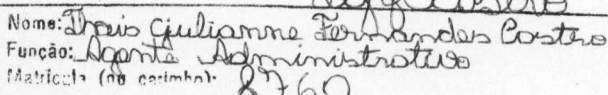 Nome: Thais Giulianne Fernandes Castro
Função: Agente Administrativo
Matrícula (ou carimbo): 8760